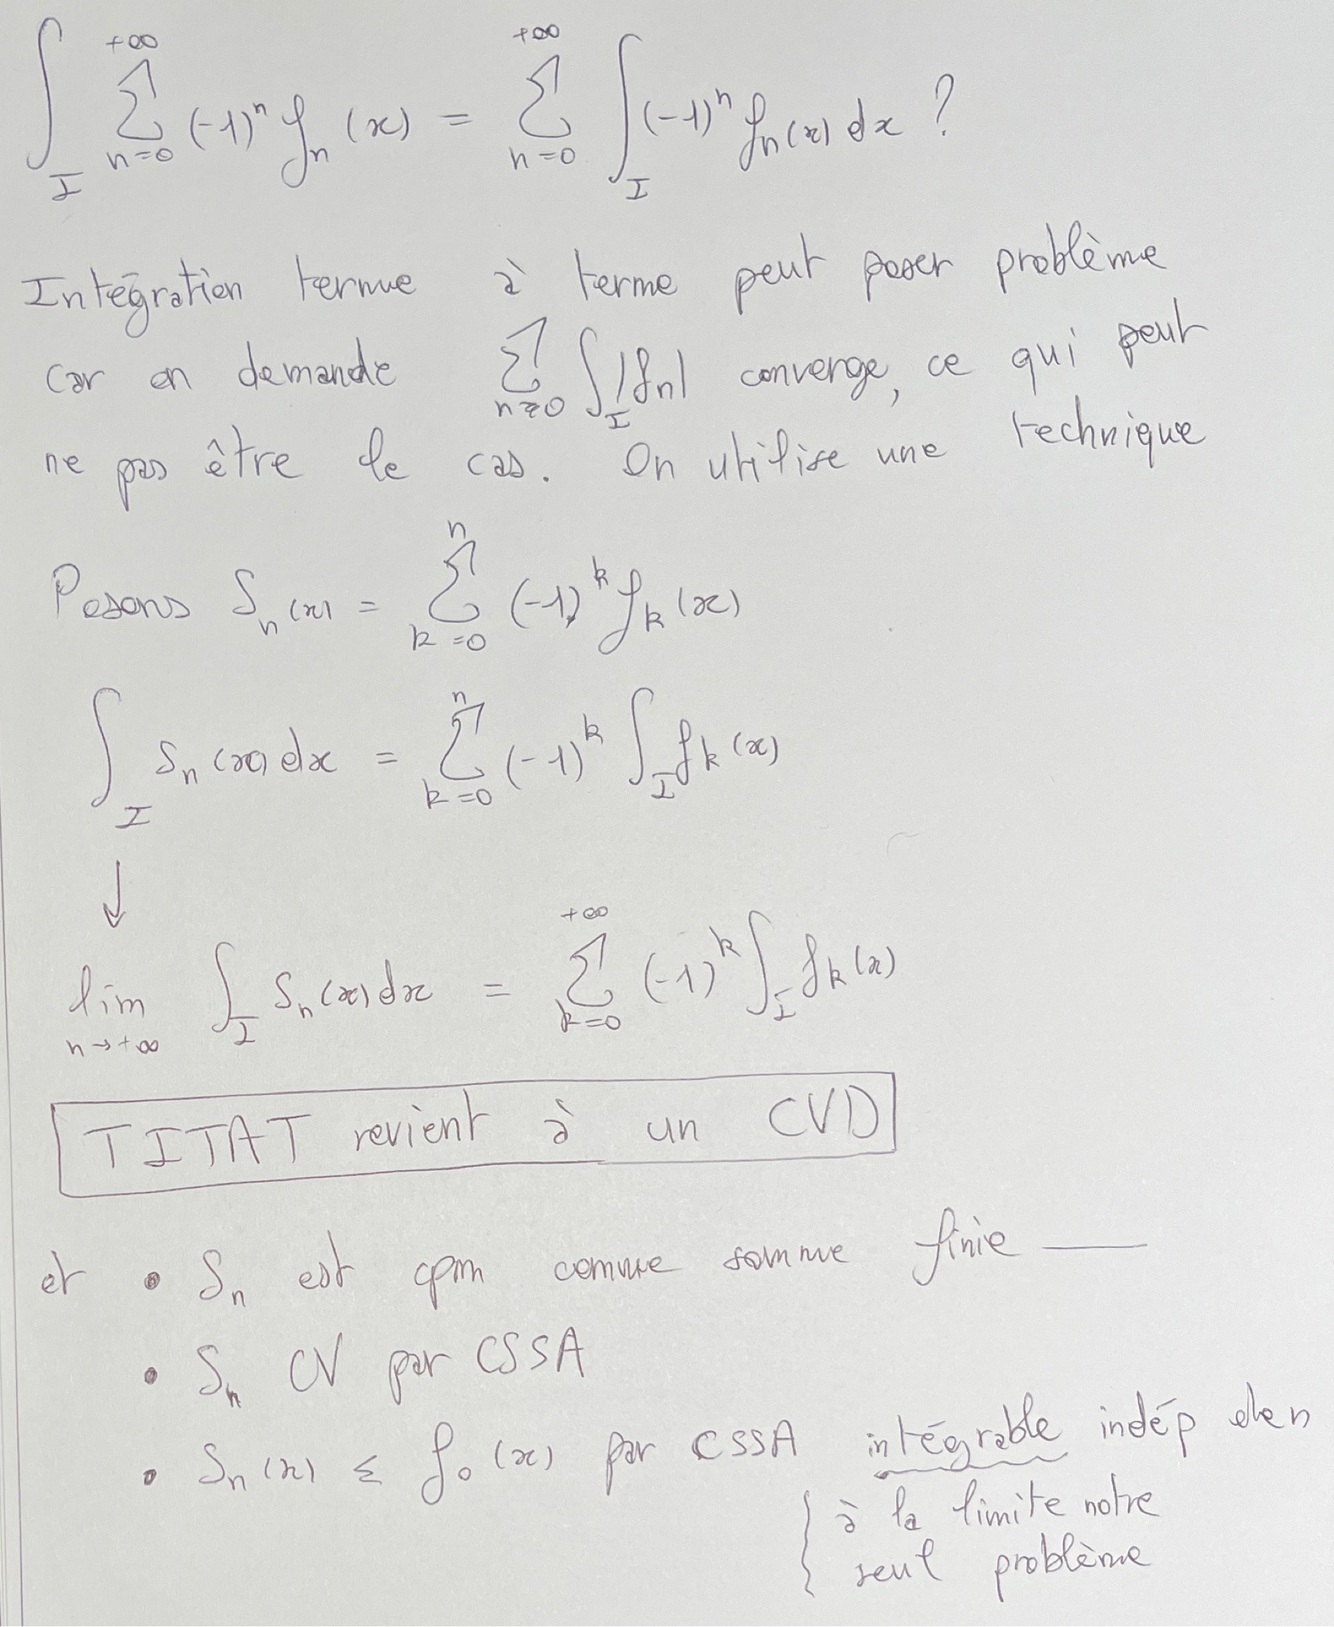 ∫_I ∑_{n=0}^{+∞} (-1)^n f_n (x) = ∑_{n=0}^{+∞} ∫_I (-1)^n f_n(x) dx ?
Intégration terme à terme peut poser problème
car on demande ∑_{n≥0} ∫_I |f_n| converge, ce qui peut
ne pas être le cas. On utilise une technique
Posons S_n(x) = ∑_{k=0}^{n} (-1)^k f_k (x)
∫_I S_n (x) dx = ∑_{k=0}^{n} (-1)^k ∫_I f_k (x)
↓
lim_{n→+∞} ∫_I S_n (x) dx = ∑_{k=0}^{+∞} (-1)^k ∫_I f_k (x)
TITAT revient à un CVD
et • S_n est cpm comme somme finie —
• S_n CV par CSSA
• S_n (x) ≤ f_0 (x) par CSSA intégrable indép de n
{ à la limite notre
seul problème